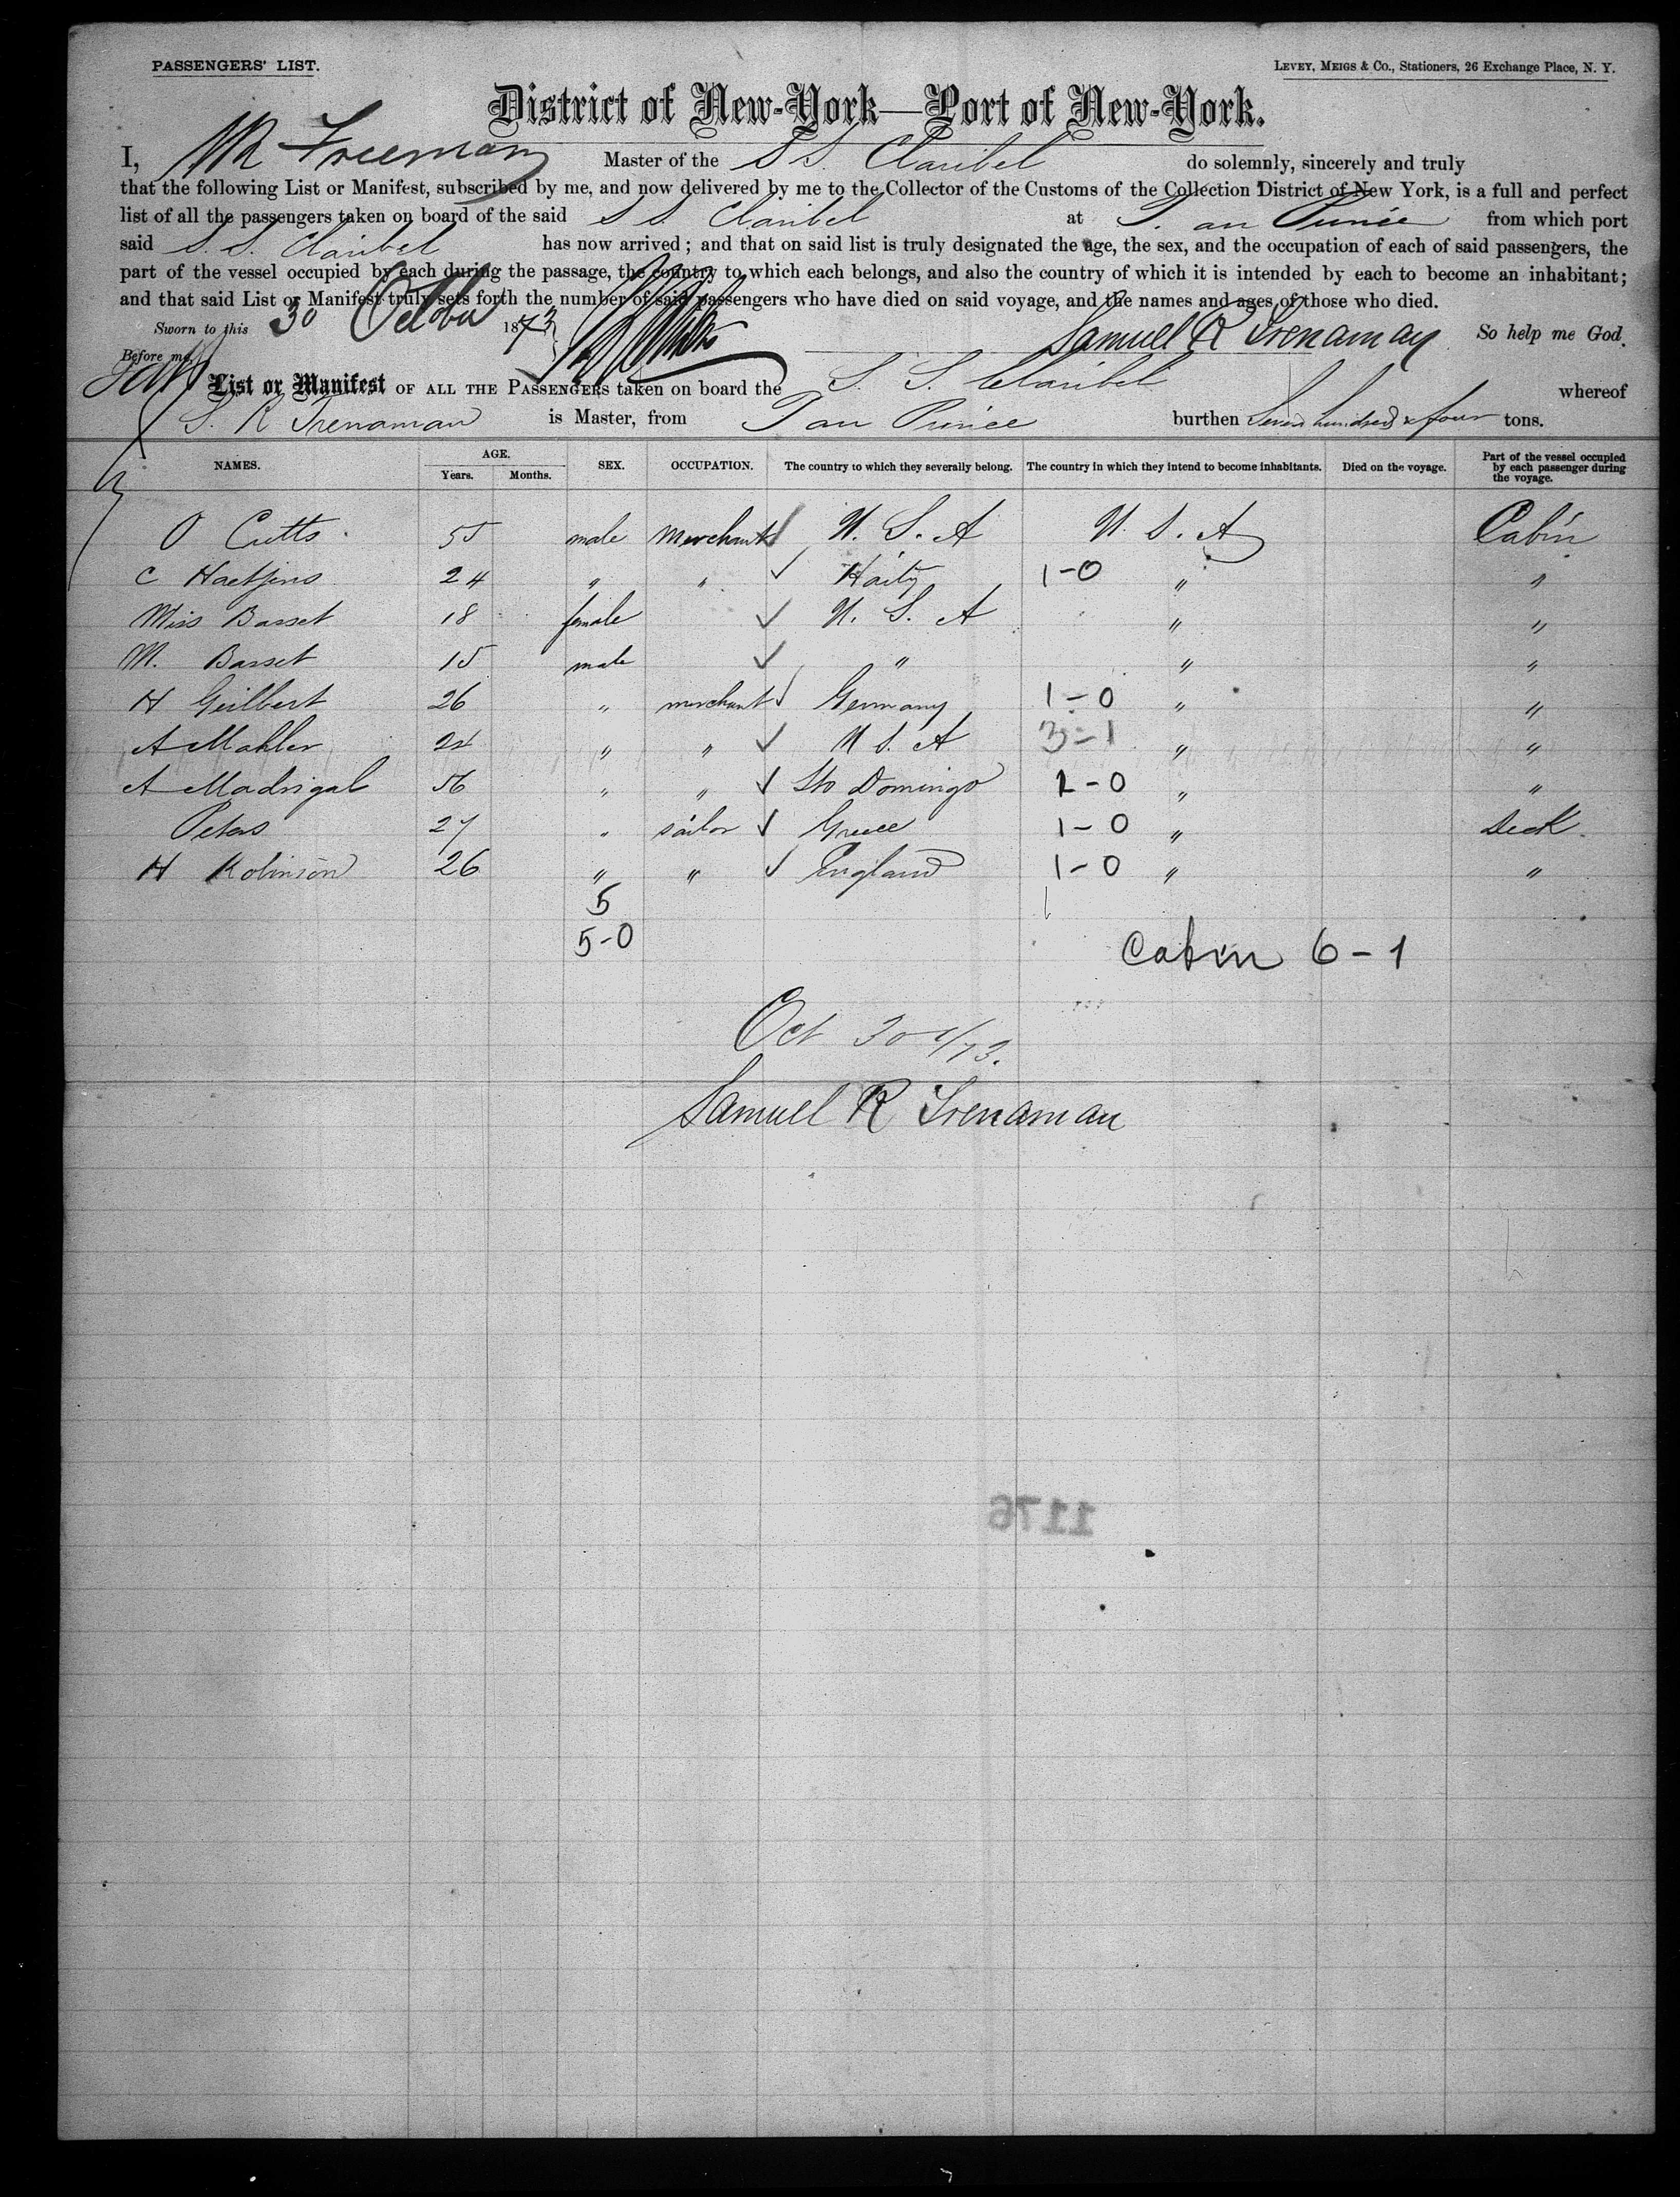 PASSENGERS' LIST.
LEVEY, MEIGS & Co., Stationers, 26 Exchange Place, N. Y.
District of New-York—Port of New-York.
I, Freeman Master of the S S. Claribel do solemnly, sincerely and truly
that the following List or Manifest, subscribed by me, and now delivered by me to the Collector of the Customs of the Collection District of New York, is a full and perfect
list of all the passengers taken on board of the said S S. Claribel at P. au Prince from which port
said S. S. Claribel has now arrived; and that on said list is truly designated the age, the sex, and the occupation of each of said passengers, the
part of the vessel occupied by each during the passage, the country to which each belongs, and also the country of which it is intended by each to become an inhabitant;
and that said List or Manifest truly sets forth the number of said passengers who have died on said voyage, and the names and ages of those who died.
Sworn to this 30 October 1873 Samuel R Trenaman So help me God.
Before me
List or Manifest OF ALL THE PASSENGERS taken on board the S. S. Claribel whereof
S. R Trenaman is Master, from P au Prince burthen Seven hundred & four tons.
NAMES. AGE. Years. Months. SEX. OCCUPATION. The country to which they severally belong. The country in which they intend to become inhabitants. Died on the voyage. Part of the vessel occupied by each passenger during the voyage.
O Cutts 55 male Merchant U. S. A U S. A Cabin
C 24 " " Haity 1-0 " "
Miss Basset 18 female U. S. A " "
M. Basset 15 male " " "
H Guilbert 26 " merchant Germany 1-0 " "
A Mahler 24 " " U S. A 3-1 " "
A Madrigal 56 " " Sto Domingo 1-0 " "
Peters 27 " sailor Greece 1-0 " Deck
H Robinson 26 " " England 1-0 " "
5
5-0
Cabin 6-1
Oct 30th/73.
Samuel R Trenaman
1176